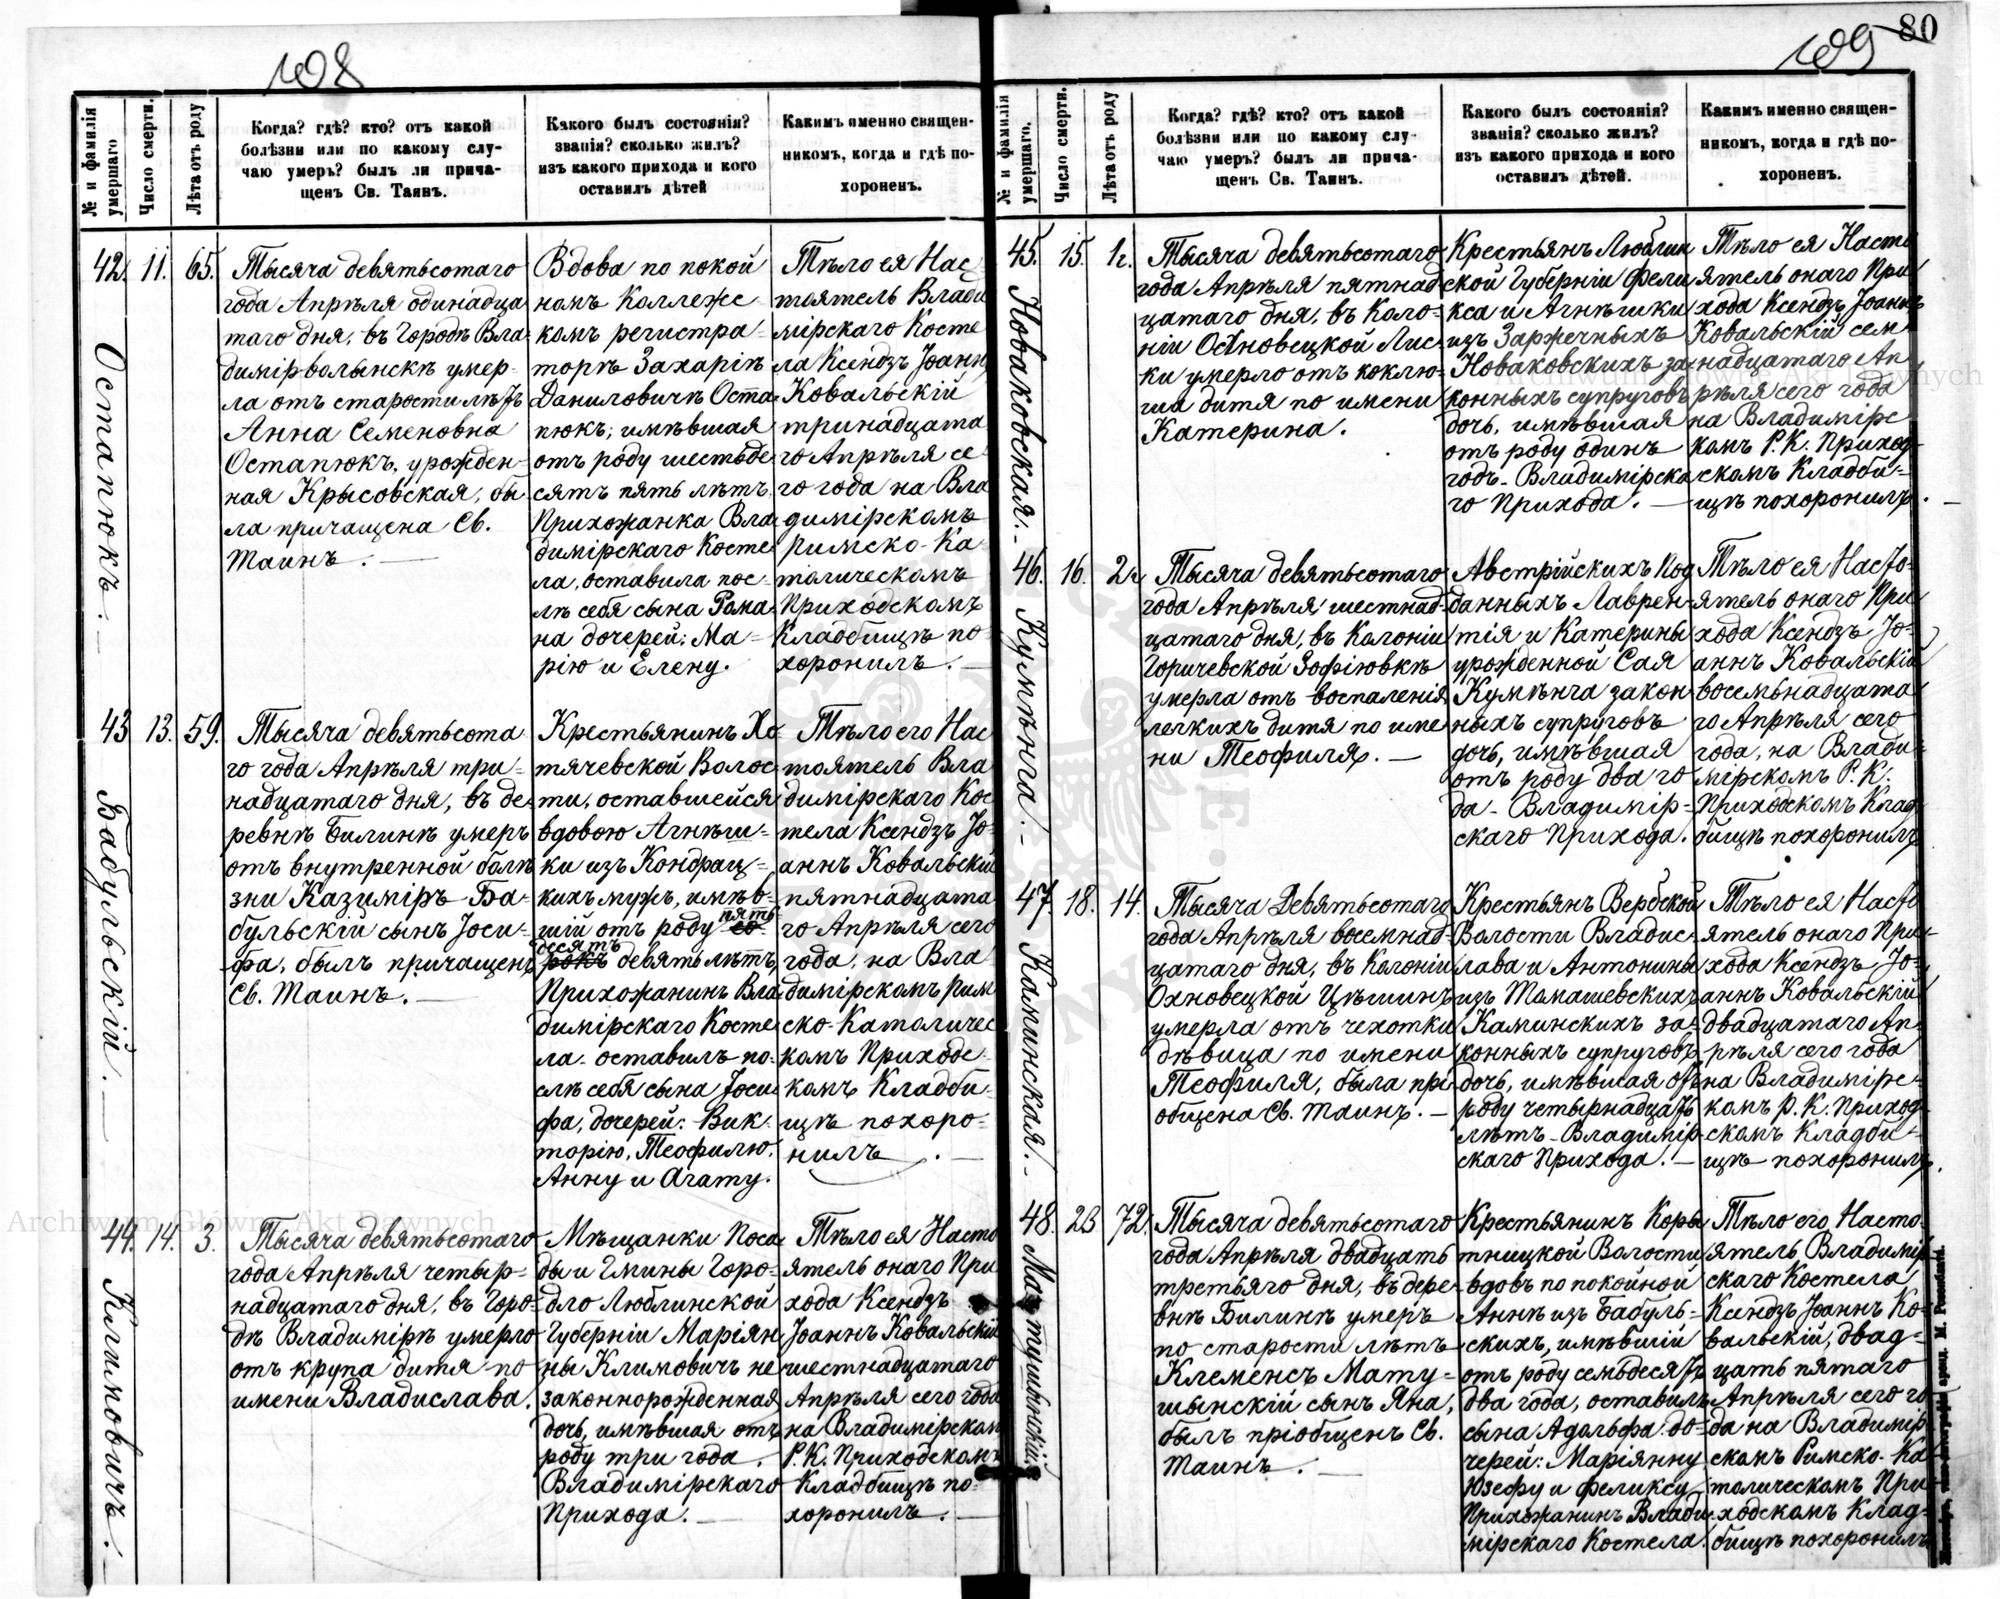 108
№ и фамилія умершаго
Число смерти.
Лѣта отъ роду
Когда? гдѣ? кто? отъ какой
болѣзни или по какому слу-
чаю умеръ? былъ ли прича-
щенъ Св. Таинъ.
Какого былъ состоянія?
званія? сколько жилъ?
изъ какого прихода и кого
оставилъ дѣтей
Какимъ именно священ-
никомъ, когда и гдѣ по-
хороненъ.
42.
Остапюкъ.
11.
65.
Тысяча девятьсотаго
года Апрѣля одинадца
таго дня, въ Городѣ Вла-
димірволынскѣ умер-
ла отъ старости лѣтъ
Анна Семеновна
Остапюкъ, урожден-
ная Крысовская, бы
ла причащена Св.
Таинъ.
Вдова по покой
номъ Коллежс
комъ регистра-
торѣ Захаріѣ
Даниловичѣ Оста-
пюкъ, имѣвшая
отъ роду шестьде
сятъ пять лѣтъ.
Прихожанка Вла
димірскаго Косте
ла, оставила пос-
лѣ себя сына Рома
на дочерей: Ма-
рію и Елену.
Тѣло ея Нас-
тоятель Влади
мірскаго Косте
ла Ксендзъ Іоаннъ
Ковальскій
тринадцата
го Апрѣля се
го года на Вла
димірскомъ
Римско-Ка
толическомъ
Приходскомъ
Кладбищѣ по-
хоронилъ.
43
Бабульскій.
13.
59.
Тысяча девятьсота
го года Апрѣля три-
надцатаго дня, въ де-
ревнѣ Билинѣ умеръ
отъ внутренной болѣ
зни Казиміръ Ба-
бульскій сынъ Іоси-
фа, былъ причащенъ
Св. Таинъ.
Крестьянинъ Хо
тячевской Волос
ти, оставшейся
вдовою Агнѣш-
ки изъ Кондрац-
кихъ мужъ, имѣв-
шій отъ роду пять
десятъ девять лѣтъ,
Прихожанинъ Вла
димірскаго Косте
ла. оставилъ по-
слѣ себя сына Іоси
фа, дочерей: Вик-
торію, Теофилю,
Анну и Агату.
Тѣло его Нас
тоятель Вла
димірскаго Кос
тела Ксендзъ Іо-
аннъ Ковальскій
пятнадцата
го Апрѣля сего
года, на Вла
димірскомъ Рим
ско-Католичес
комъ Приходс-
комъ Кладби-
щѣ похоро-
нилъ.
44.
Климовичъ.
14.
3.
Тысяча девятьсотаго
года Апрѣля четыр-
надцатаго дня, въ Горо-
дѣ Владимірѣ умерло
отъ крупа дитя по
имени Владислава.
Мѣщанки Поса
ды и Гмины Горо-
дло Люблинской
Губерніи Маріян
ны Климовичъ не
законнорожденная
дочь, имѣвшая отъ
роду три года.
Владимірскаго
Прихода.
Тѣло ея Насто
ятель онаго При
хода Ксендзъ
Іоаннъ Ковальскій
шестнадцатаго
Апрѣля сего года
на Владимірскомъ
Р.К. Приходскомъ
Кладбищѣ по-
хоронилъ.
109
80
№ и фамилія умершаго.
Число смерти.
Лѣта отъ роду
Когда? гдѣ? кто? отъ какой
болѣзни или по какому слу-
чаю умеръ? былъ ли прича-
щенъ Св. Таинъ.
Какого былъ состоянія?
званія? сколько жилъ?
изъ какого прихода и кого
оставилъ дѣтей.
Какимъ именно священ-
никомъ, когда и гдѣ по-
хороненъ.
45.
Новаковская.
15.
1г.
Тысяча девятьсотаго
года Апрѣля пятнад
цатаго дня, въ Коло-
ніи Лис-
ки умерло отъ коклю-
ша дитя по имени
Катерина.
Крестьянъ Люблин
ской Губерніи Фели
кса и Агнѣшки
изъ Заржечныхъ
Новаковскихъ за-
конныхъ супруговъ
дочь, имѣвшая
отъ роду одинъ
годъ - Владимірска
го Прихода.
Тѣло ея Насто
ятель онаго При
хода Ксендзъ Іоаннъ
Ковальскій сем
надцатаго Ап
рѣля сего года
на Владимірс
комъ Р.К. Приход-
скомъ Кладби-
щѣ похоронилъ.
46.
Кумѣнга.
16.
2г
Тысяча девятьсотаго
года Апрѣля шестнад-
цатаго дня, въ Колоніи
Горичевской Зофіювкѣ
умерла отъ воспаленія
легкихъ дитя по име
ни Теофиля.
Австрійскихъ Под
данныхъ Лаврен-
тія и Катерины
урожденной Сая
Кумѣнга закон
ныхъ супруговъ
дочь, имѣвшая
отъ роду два го
да - Владимір-
скаго Прихода.
Тѣло ея Насто-
ятель онаго При
хода Ксендзъ Іо-
аннъ Ковальскій
восемьнадцата
го Апрѣля сего
года, на Влади-
мірскомъ Р.К.
Приходскомъ Клад
бищѣ похоронилъ
47.
Каминская.
18.
14.
Тысяча Девятьсотаго
года Апрѣля восемнад-
цатаго дня, въ Колоніи
Охновецкой Цѣшинъ
умерла отъ чехотки
дѣвица по имени
Теофиля, была прі
общена Св. Таинъ.
Крестьянъ Вербской
Волости Владис-
лава и Антонины
изъ Томашевскихъ
Каминскихъ за-
конныхъ супруговъ
дочь, имѣвшая отъ
роду четырнадцать
лѣтъ - Владимір-
скаго Прихода.
Тѣло ея Насто
ятель онаго При-
хода Ксендзъ Іо-
аннъ Ковальскій
двадцатаго Ап-
рѣля сего года
на Владимірс-
комъ Р.К. Приход-
скомъ Кладби-
щѣ похоронилъ.
48.
Матушынскій
23
72.
Тысяча девятьсотаго
года Апрѣля двадцать
третьяго дня, въ дере
внѣ Билинѣ умеръ
по старости лѣтъ
Клеменсъ Мату-
шынскій сынъ Яна,
былъ пріобщенъ Св.
Таинъ.
Крестьянинъ Коры
тницкой Волости,
вдовъ по покойной
Аннѣ изъ Бабуль-
скихъ, имѣвшій
отъ роду семьдесятъ
два года, оставилъ
сына Адольфа до-
черей: Маріянну
Юзефу и Феликсу
Прихожанинъ Влади-
мірскаго Костела.
Тѣло его Насто-
ятель Владимір
скаго Костела
Ксендзъ Іоаннъ Ко-
вальскій, двад-
цать пятаго
Апрѣля сего го
да на Владимір
скомъ Римско-Ка
толическомъ При
ходскомъ Клад-
бищѣ похоронилъ
Archiwum Główne Akt Dawnych
Archiwum Główne Akt Dawnych